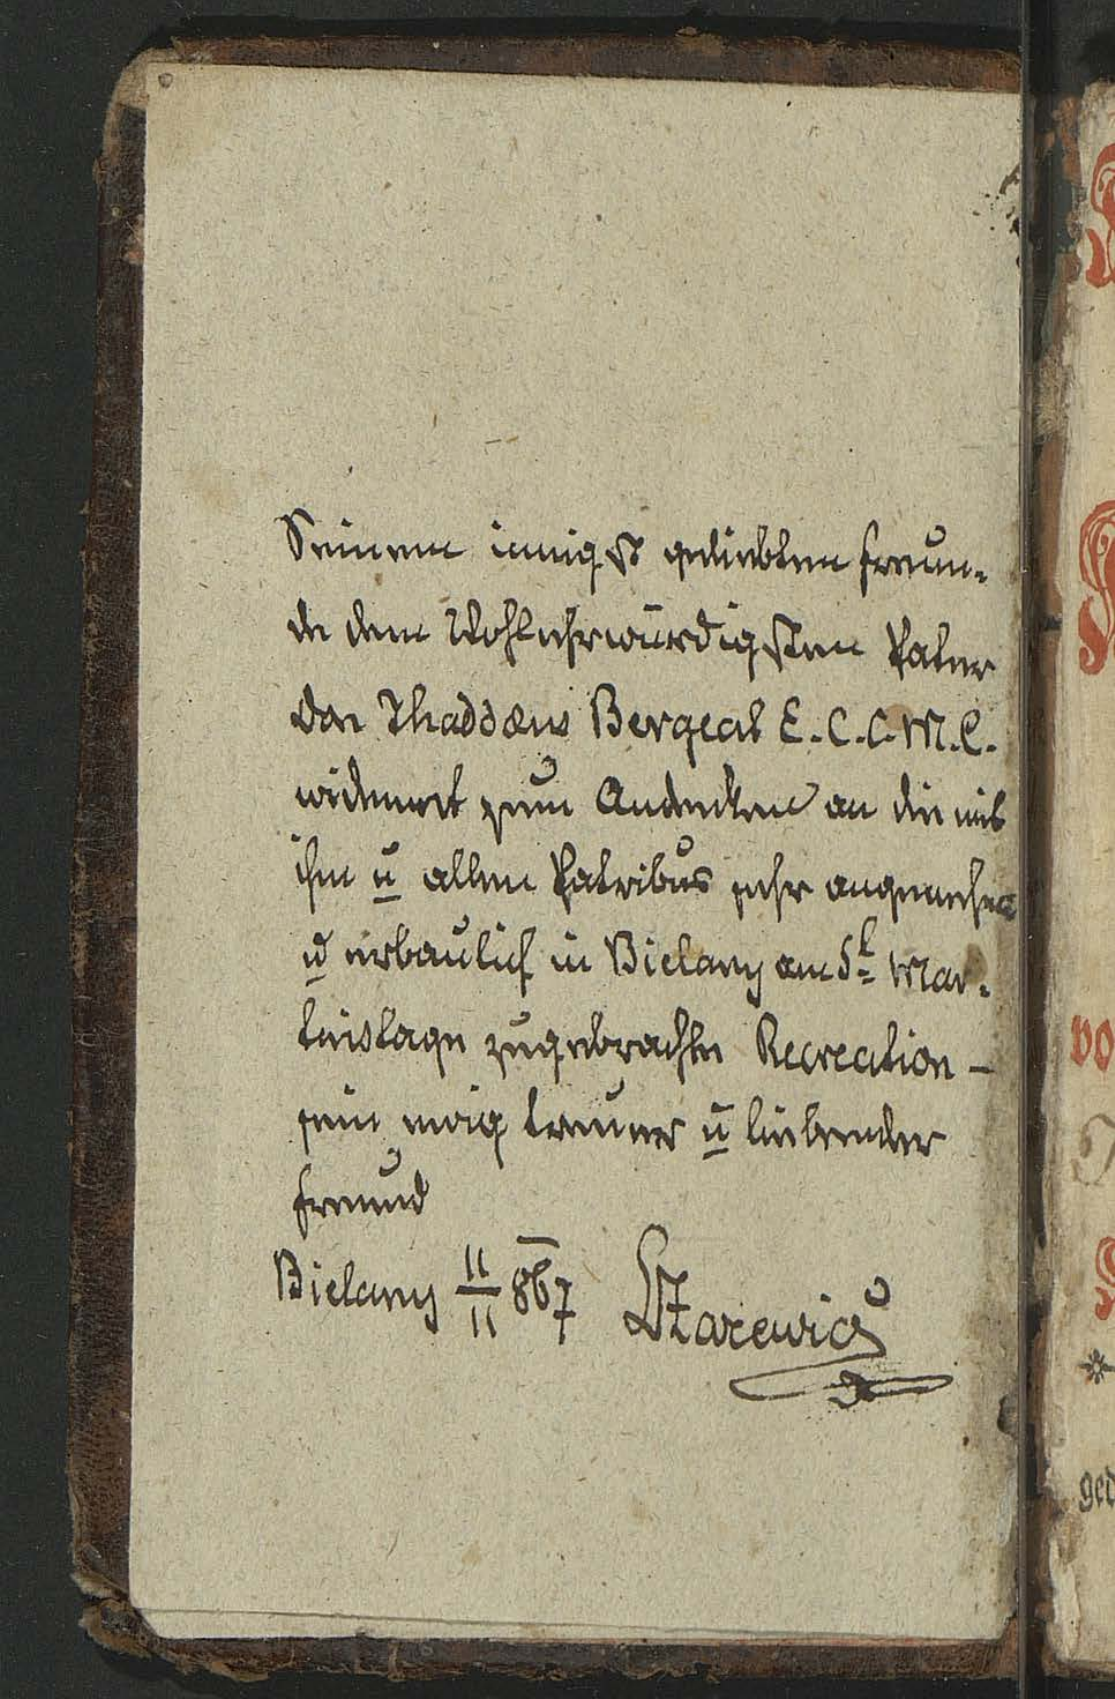 Seinem innigst geliebten Freun-
de dem Wohlehrwürdigsten Pater
Don Thaddæus Bergeat E. C. C. M. C.
widmet zum Andenken an die mit
ihm ū allen Patribus sehr angenehm
ū erbaulich in Bielany am St Mar-
tinstage zugebrachte Recreation –
sein ewig treuer ū liebender
Freund
Bielany 11/11 867
vo
ged